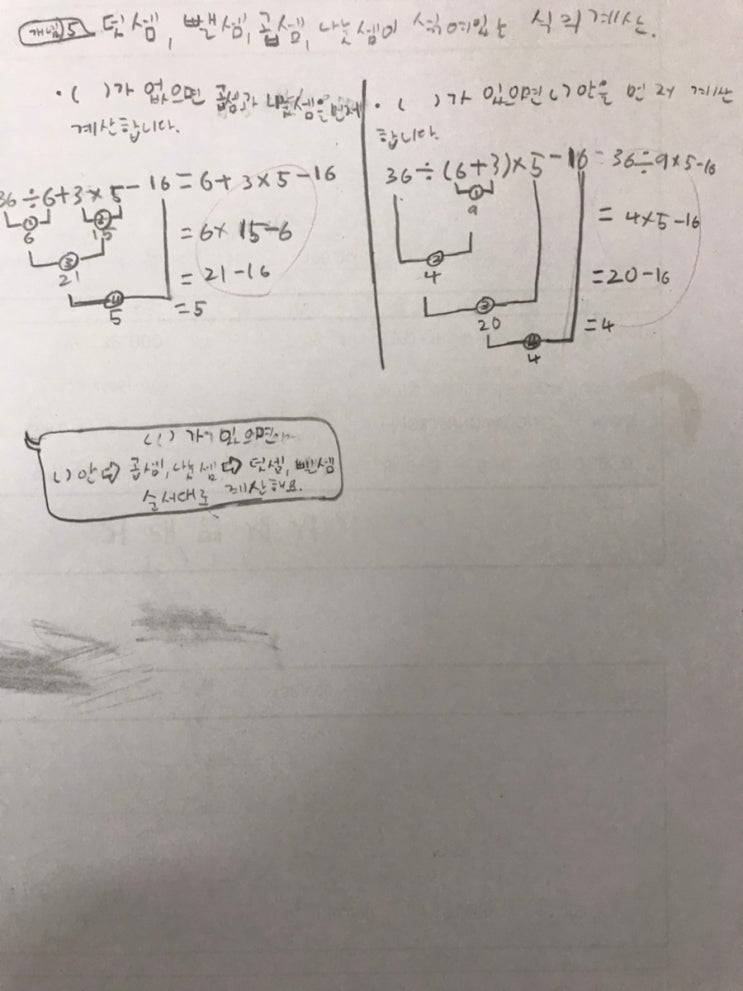 개념5 덧셈, 뺄셈, 곱셈, 나눗셈이 섞여있는 식의 계산.
· ( )가 없으면 곱셈과 나눗셈을 먼저
계산합니다.
36÷6+3×5-16=6+3×5-16
① ②
6 15
=6×15-6
③
21
=21-16
④
5
=5
· ( )가 있으면 ( ) 안을 먼저 계산
합니다.
36÷(6+3)×5-16=36÷9×5-16
①
9
=4×5-16
②
4
=20-16
③
20
=4
④
4
( ) 가 있으면
( ) 안 ⇨ 곱셈, 나눗셈 ⇨ 덧셈, 뺄셈
순서대로 계산해요.